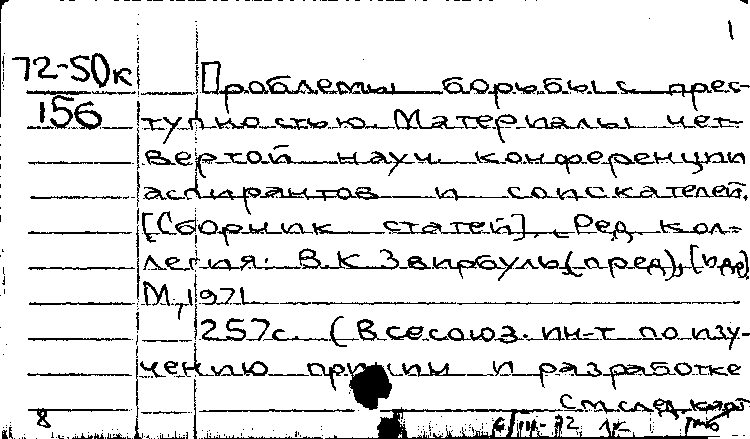 1
72-50к
156
Проблемы борьбы с прес-
тупностью. Материалы чет-
вертой науч. конференции
аспирантов и соискателей.
[Сборник статей]. Ред. кол-
легия: В.К Звирбуль (пред), [и др]
М, 1971
257с. (Всесоюз. ин-т по изу-
чению причин и разработке
См след. карт
8 6/III-72 ЛК